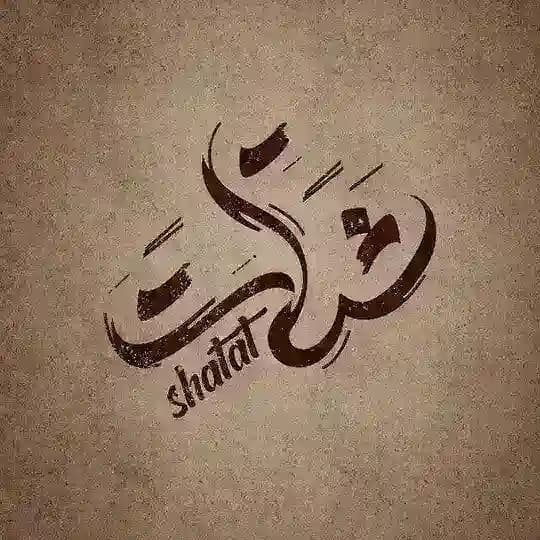 شتات
shatat